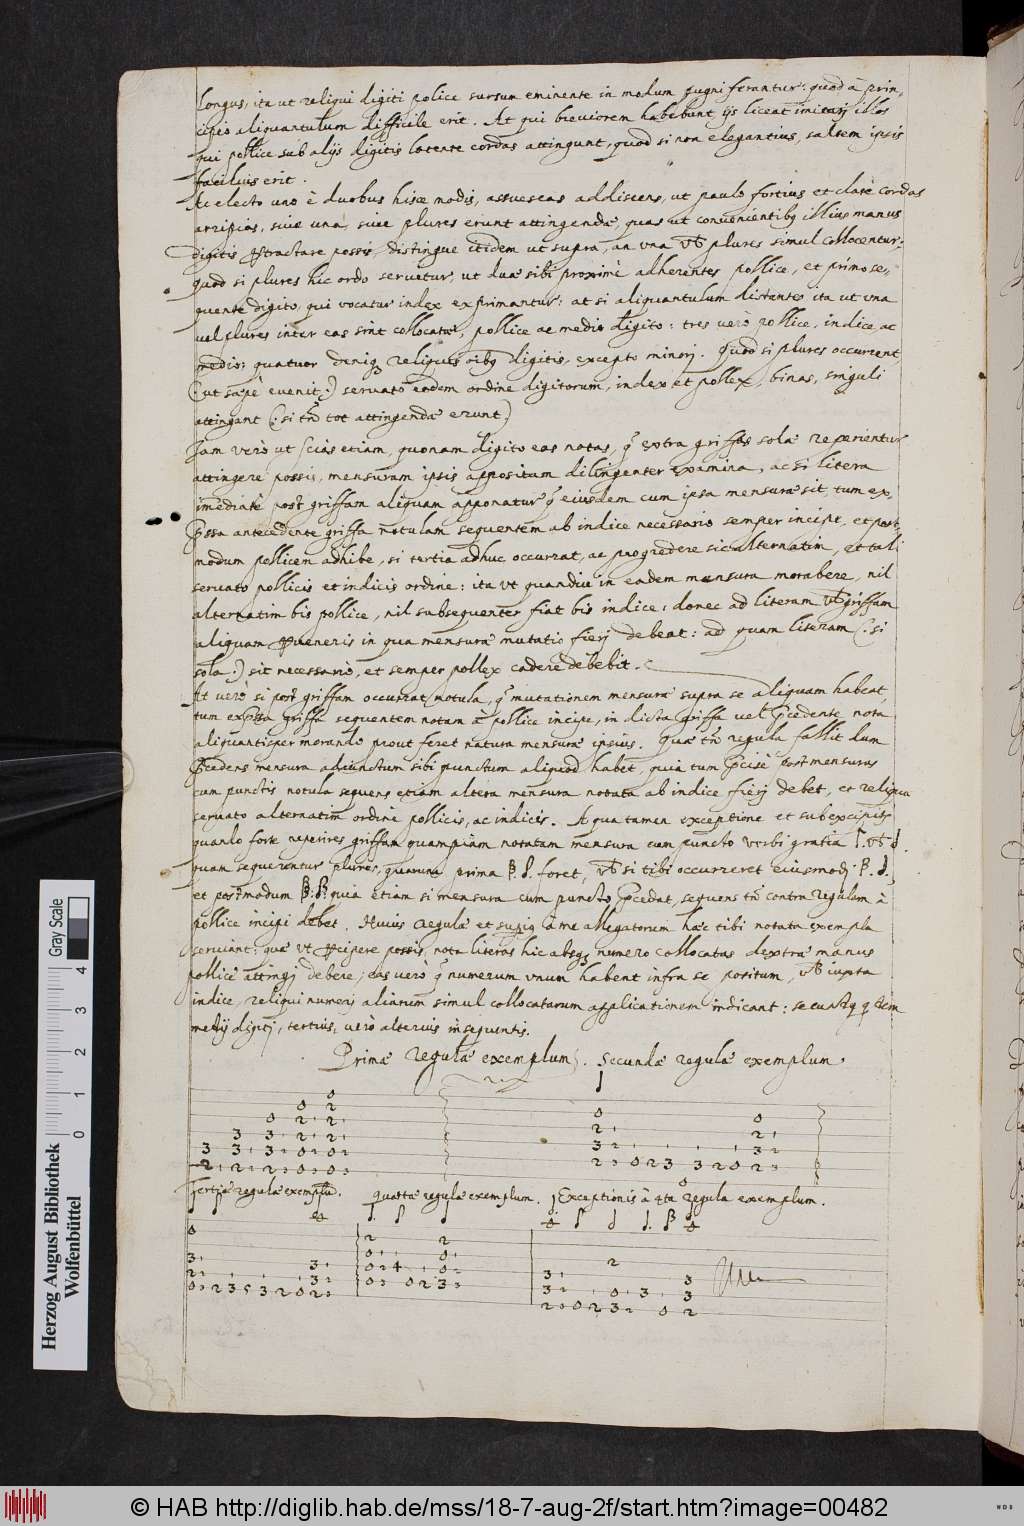 longus, ita ut reliqui digiti police sursum eminente in modum pugni ferantur: quod à prin,
cipio aliquantulum difficile erit. At qui breviorem habebunt ijs liceat imitarj illos
qui pollice sub alijs digitis latente cordas attingunt, quod si non elegantius, saltem ipsis
facilius erit.
Ac electo uno è duobus hisce modis, assuescas addiscens, ut paulo fortius et clarè cordas
arripias, sive una, sive plures erunt attingendæ, quas ut convenientibq illius manus
digitis ꝑtractare possis, distingue itidem ut supra, an una vel plures simul collocentur:
quod si plures hic ordo servetur, ut duæ sibi proximè adherentes pollice, et primo se,,
quente digito, qui vocatur index exprimantur: at si aliquantulum distantes ita ut una
vel plures inter eas sint collocatæ, pollice ac medio digito: tres verò pollice, indice, ac
medio; quatuor deniqʒ reliquis oibq digitis, excepto minorj. Quod si plures occurrent,
(: ut sæpè evenit :) servato eodem ordine digitorum, index et pollex, binas, singuli
attingant (: si tn̄ tot attingendæ erunt)
Jam verò ut scias etiam, quonam digito eas notas, q̄ extra griffas solæ reperientur
attingere possis, mensuram ipsis appositam diligenter examina, ac si litera
im̄ediatè post griffam aliquam apponatur q̄ eiusdem cum ipsa mensuræ sit, tum ex,,
p̄ssa antecedente griffa notulam sequentem ab indice necessario semper incipe, et post,
modum pollicem adhibe, si tertia adhuc occurrat, ac progredere sic alternatim, et tali
servato pollicis et indicis ordine: ita vt quandiu in eadem mensura morabere, nil
alternatim bis pollice, nil subsequenter fiat bis indice: donec ad literam vel griffam
aliquam ꝑveneris in qua mensuræ mutatio fierj debeat: ad quam literam (: si
sola :) sic necessariò, et semper pollex cadere debebit.
At verò si post griffam occurrat notula, q̄ mutationem mensuræ supra se aliquam habeat,
tum exp̄ssa griffa sequentem notam à pollice incipe, in dicta griffa vel p̄cedente nota
aliquantisper morando prout feret natura mensuræ ipsius. Quæ tn̄ regula fallit dum
p̄cedens mensura adiunctum sibi punctum aliquod habet, quia tum p̄cisè post mensuras
cum punctis notula sequens etiam altera mensura notata ab indice fierj debet, et reliqua
servato alternatim ordine pollicis, ac indicis. A qua tamen exceptione et subexcipitur
quando forte reperires griffam quampiam notatam mensura cum puncto verbi gratia
quam sequerentur plures, quarum prima foret, vel si tibi occurreret eiusmodj
et postmodum quia etiam si mensura cum puncto p̄cedat, sequens tn̄ contra regulam à
pollice incipi debet. Huius regulæ et à me allegatorum hæc tibi notata exempla
serviant: quæ vt ꝑcipere possis, nota literas hic absqʒ numero collocatas dextræ manus
pollice attingj debere; eas verò q̄ numerum unum habent infra se positum, vel iuxta
indice, reliqui numerj aliarum simul collocatarum applicationem indicant: secundq
medij digitj, tertius, verò alterius insequentis.
Primæ regulæ exemplum. Secundæ regulæ exemplum.
Tertiæ regulæ exemplū. Quartæ regulæ exemplum. Exceptionis à 4ta regula exemplum.
Herzog August Bibliothek
Wolfenbüttel
0 1 2 3 4
Gray Scale
© HAB http://diglib.hab.de/mss/18-7-aug-2f/start.htm?image=00482